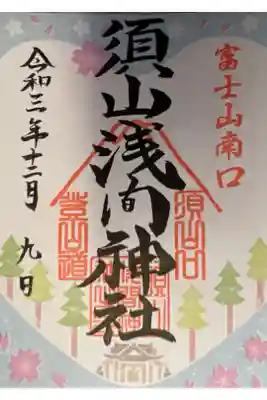 富士山南口
須山浅間神社
令和三年十二月 九日
須山口
登山道